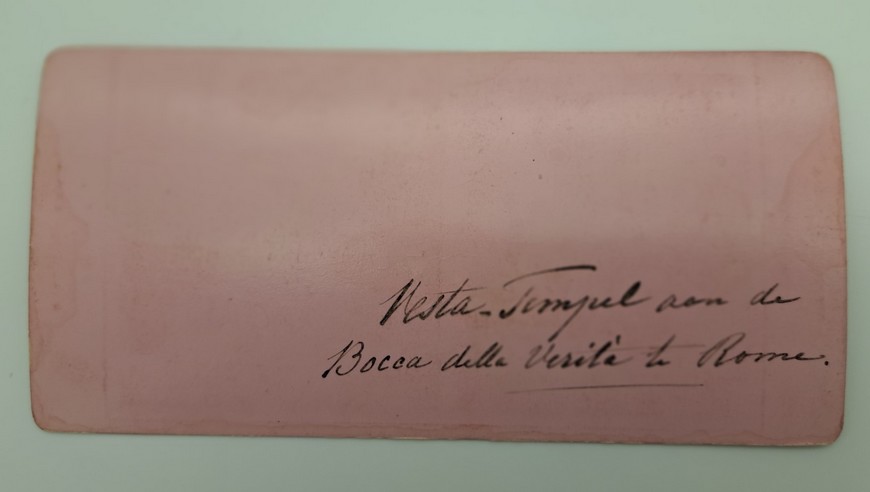 Vesta-Tempel aan de
Bocca della Verità te Rome.